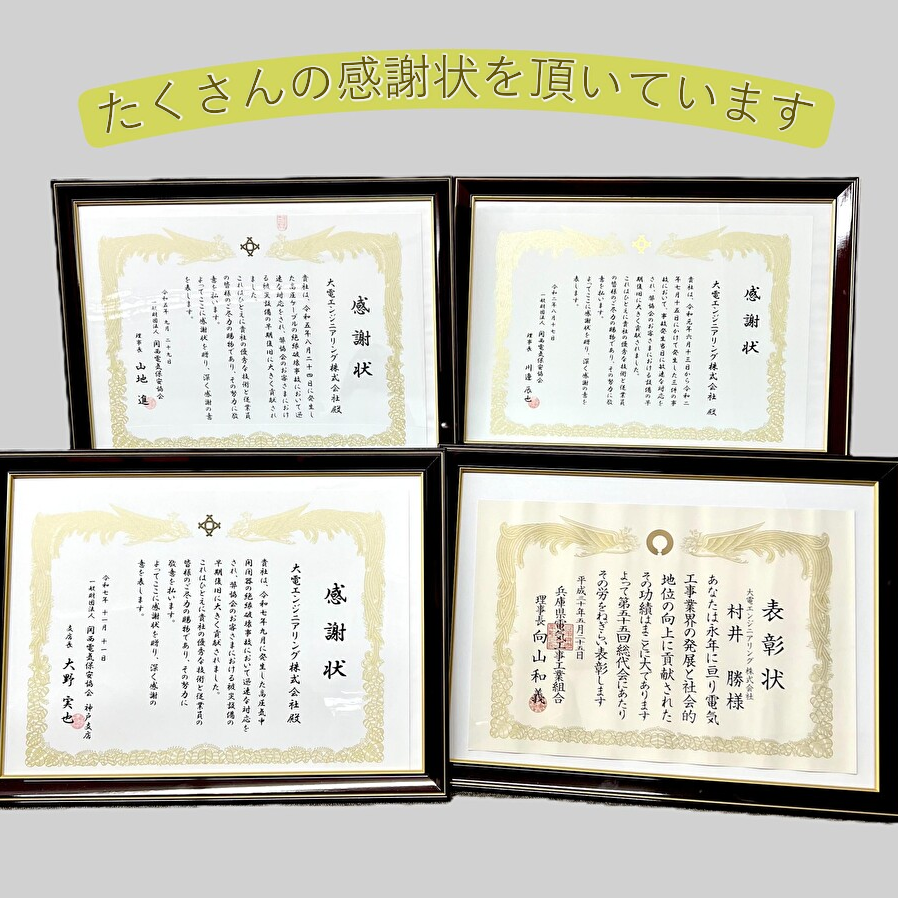 たくさんの感謝状を頂いています
感謝状
大電エンジニアリング株式会社 殿
貴社は、令和五年八月二十四日に発生し
た高圧ケーブルの絶縁破壊事故において迅
速な対応をされ、弊協会のお客さまにおけ
る被災設備の早期復旧に大きく貢献され
ました。
これはひとえに貴社の優秀な技術と従業員
の皆様のご尽力の賜物であり、その努力に敬
意を払います。
よってここに感謝状を贈り、深く感謝の意
を表します。
令和五年 九月 二十九日
一般財団法人 関西電気保安協会
理事長 山地 進
感謝状
大電エンジニアリング株式会社 殿
貴社は、令和元年六月十三日から令和二
年七月十五日にかけて発生した三件の事
故において、事故発生当日に救速な対応を
され、弊協会のお客さまにおける設備の早
期復旧に大きく貢献されました。
これはひとえに貴社の優秀な技術と従業員
の皆様のご尽力の賜物であり、その努力に敬
意を払います。
よってここに感謝状を贈り、深く感謝の意を
表します。
令和二年八月十七日
一般財団法人 関西電気保安協会
理事長 川邊 辰也
感謝状
大電エンジニアリング株式会社 殿
貴社は、令和七年九月に発生した高圧気中
開閉器の絶縁破壊事故において迅速な対応を
され、弊協会のお客さまにおける被災設備の
早期復旧に大きく貢献されました。
これはひとえに貴社の優秀な技術と従業員の
皆様のご尽力の賜物であり、その努力に
敬意を払います。
よってここに感謝状を贈り、深く感謝の
意を表します。
令和七年 十一月 十一日
一般財団法人 関西電気保安協会 神戸支店
支店長 大野 実也
表彰状
大電エンジニアリング 株式会社
村井 勝様
あなたは永年に亘り電気
工事業界の発展と社会的
地位の向上に貢献された
その功績はまことに大であります
よって第五十五回総代会にあたり
その労をねぎらい表彰します
平成三十年五月二十五日
兵庫県電気工事工業組合
理事長 向山和義